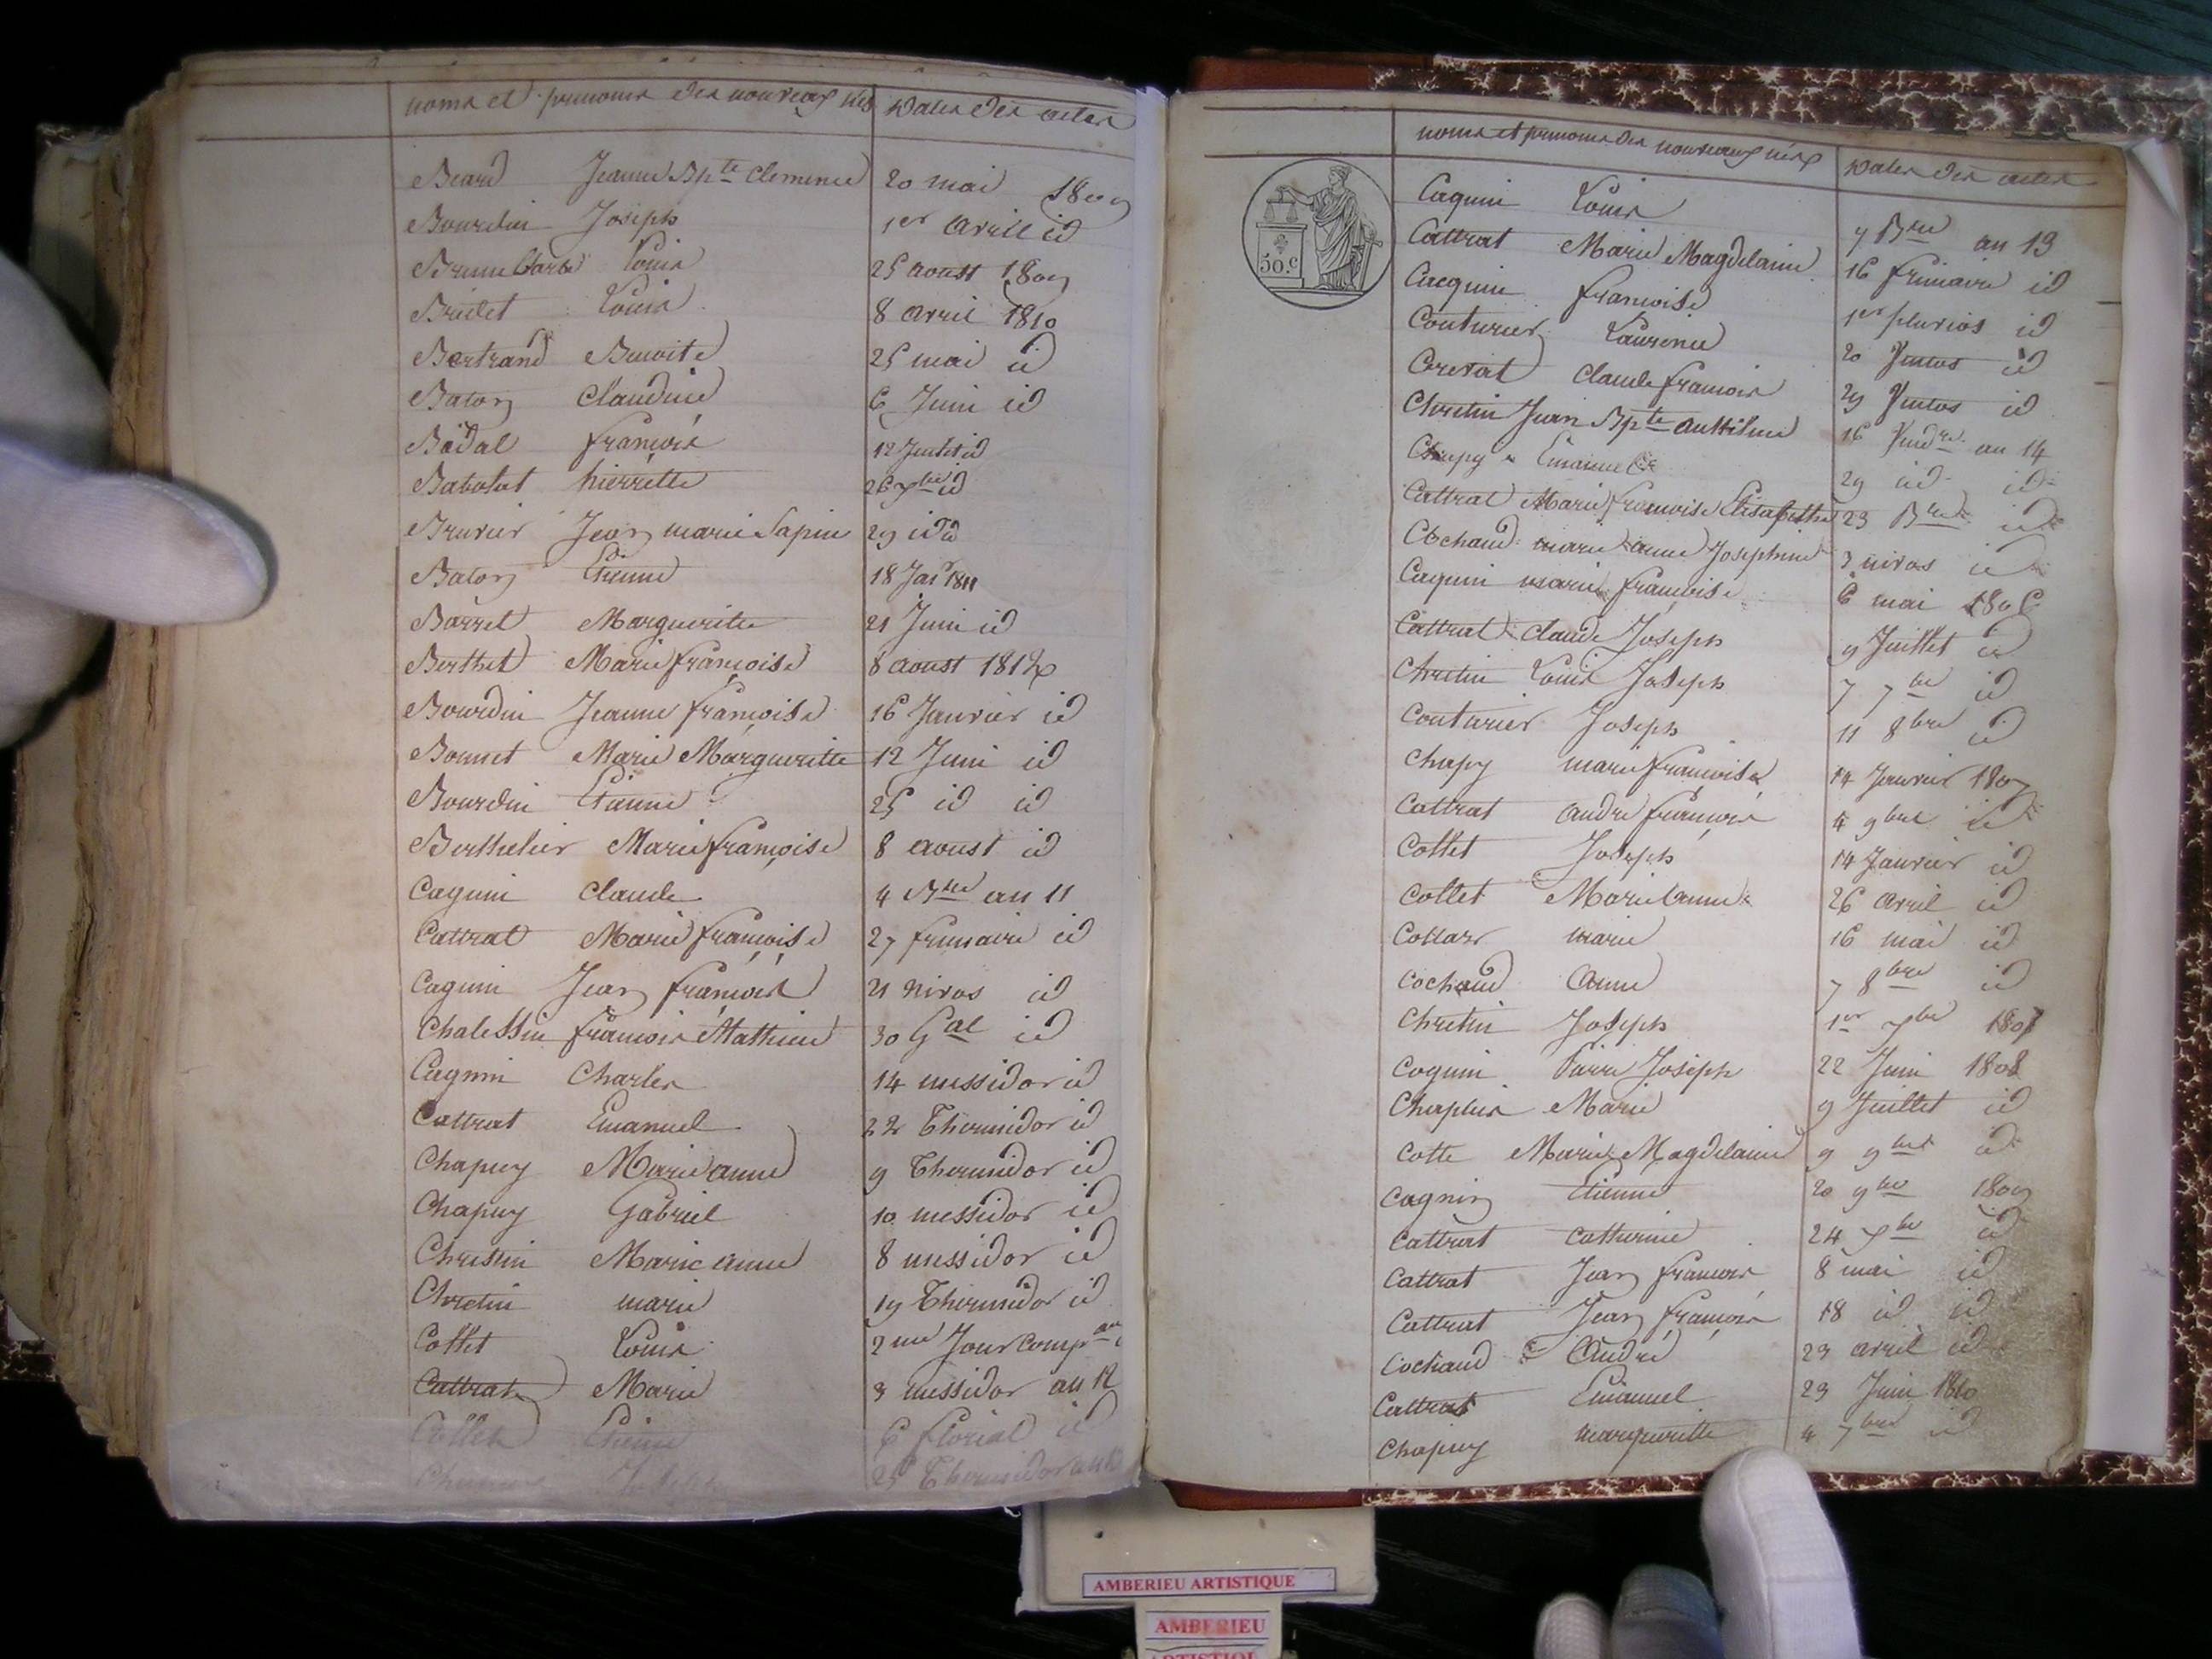 noms et prenoms des nouveaux nés Dates des actes
Beard Jeanne Bpte Clemence 20 mai 1809
Bourdin Joseph 1er avril id
Brune Barbe Louis 25 aoust 1809
Brulet Louis 8 avril 1810
Bertrand Benoite 25 mai id
Baton Claudine 6 Juin id
Badal françois 12 Juillet id
Babolat pierrette 26 7bre id
Bruvier Jean marie Sapin 29 id id
Baton Etienne 18 Jas 1811
Barret Marguerite 21 Juin id
Berthet Marie françoise 8 aoust 1812
Bourdin Jeanne françoise 16 Janvier id
Bonnet Marie Margueritte 12 Juin id
Bourdin Etienne 25 id id
Berthelier Marie françoise 8 aoust id
Caguin Claude 4 Bre an 11
Cattrat Marie françoise 27 frimaire id
Caguin Jean françois 21 nivos id
Chalessin françois Mathieu 30 Gal id
Cagnin Charles 14 messidor id
Cattrat Emanuel 22 Thermidor id
Chapuy Marie anne 9 Thermidor id
Chapuy Gabriel 10 messidor id
Chressin Marie anne 8 messidor id
Chretin marie 19 Thermidor id
Collet Louis 2me Jour Comp
Cattrat Marie 3 messidor an 12
Collet Etienne 6 floreal id
25 Thermidor
noms et prenoms des nouveaux nés Dates des actes
50.c
Caguin Louis 7 Bre an 13
Cattrat Marie Magdelaine 16 frimaire id
Cacguin françoise 1er pluvios id
Couturier Laurence 20 Ventos id
Crevat Claude francois 29 Ventos id
Chretin Jean Bpte anthilme 16 Vendre an 14
Chapy Emanuel 29 id id
Cattrat Marie françoise Elisabethe 23 Bre id
Cochaud marie anne Josephine 3 nivos id
Caguin marie françoise 6 mai 1806
Cattrat Claude Joseph 9 Juillet id
Chretin Louis Joseph 7 7bre id
Couturier Joseph 11 8bre id
Chapy marie françoise 14 Janvier 1807
Cattrat andre françois 4 9bre id
Collet Joseph 14 Janvier id
Collet Marie anne 26 avril id
Collars marie 16 mai id
Cochaud anne 7 8bre id
Chretin Joseph 1er 7bre 1807
Coguin Pierre Joseph 22 Juin 1808
Chaplus Marie 9 Juillet id
Cotte Marie Magdelaine 9 9bre id
Cagnin Etienne 20 9bre 1809
Cattrat Catherine 24 7bre id
Cattrat Jean françois 8 mai id
Cattrat Jean françois 18 id id
Cochaud André 23 avril id
Cattrat Emanuel 23 Juin 1810
Chapuy marguerite 4 7bre id
AMBERIEU ARTISTIQUE
AMBERIEU
ARTISTIQUE